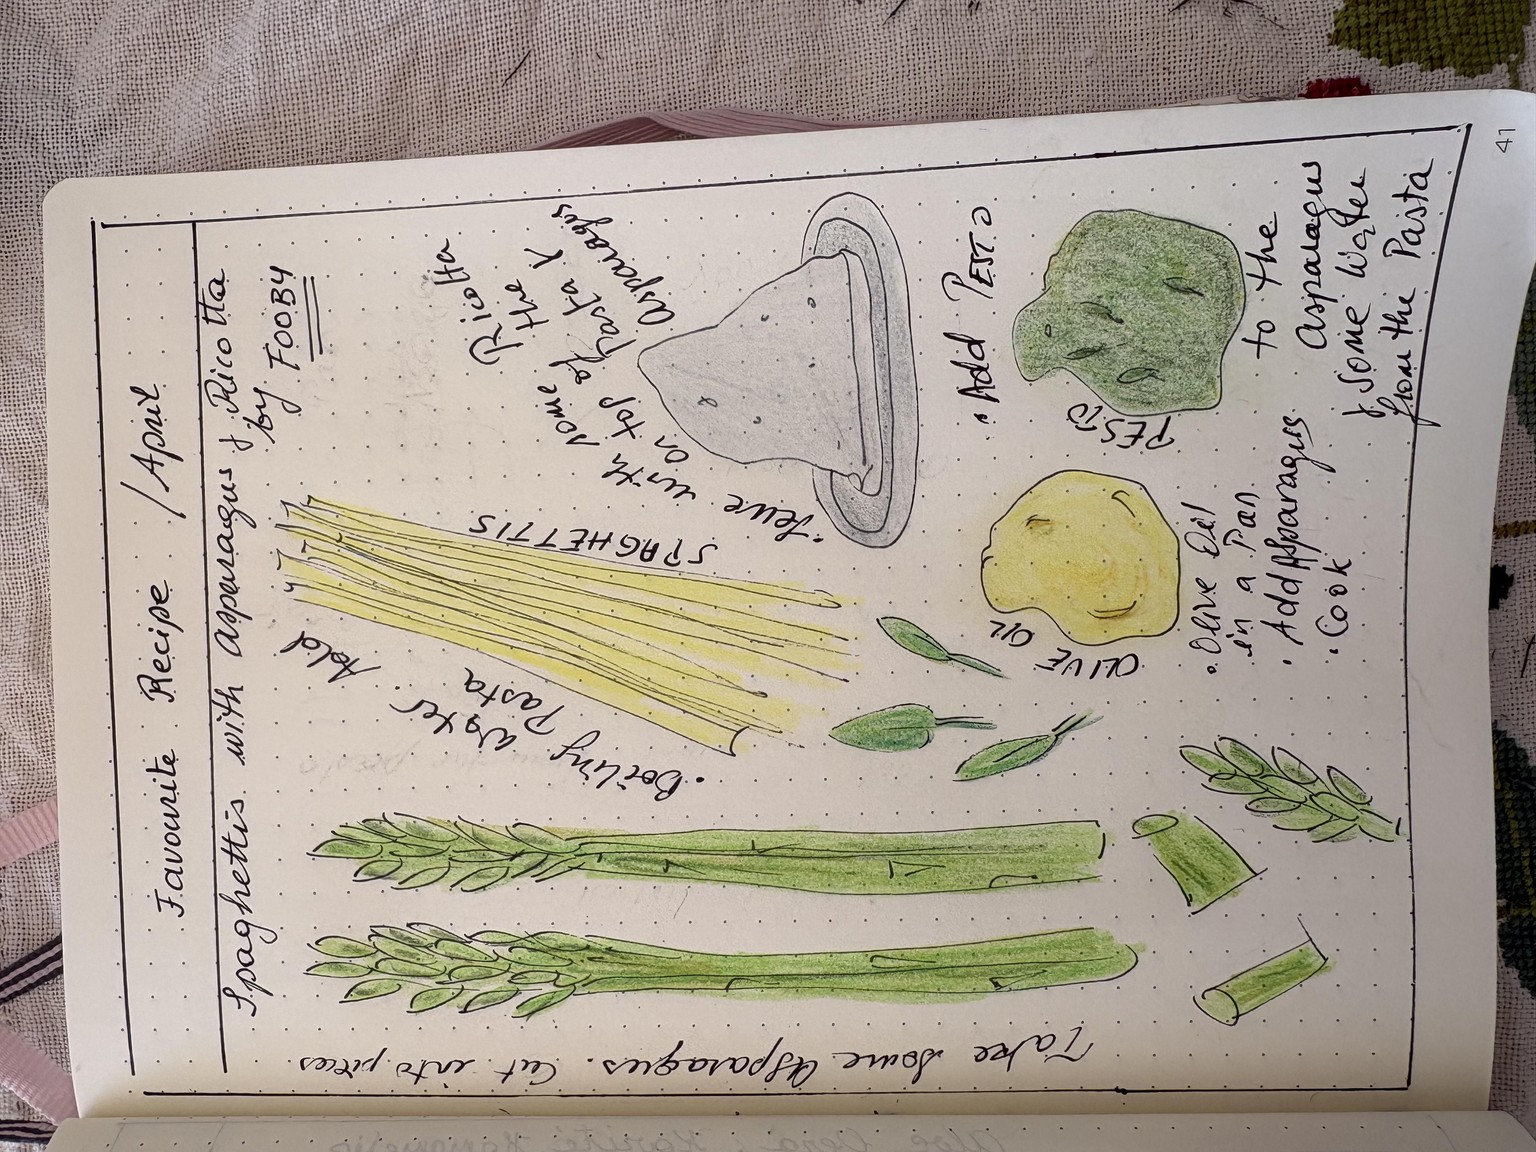 Favourite Recipe / April
Spaghettis with asparagus & Ricotta
by FOOBY
Take some Asparagus. Cut into pieces
• Boiling Water. Add
Pasta
SPAGHETTIS
with some Ricotta
on top of the
Pasta &
Asparages
OLIVE OIL
• Olive Oil
in a Pan
• Add Apparages
• Cook
• Add PESTO
PESTO
to the
asparagus
& some Water
from the Pasta
41
Aloe Vera